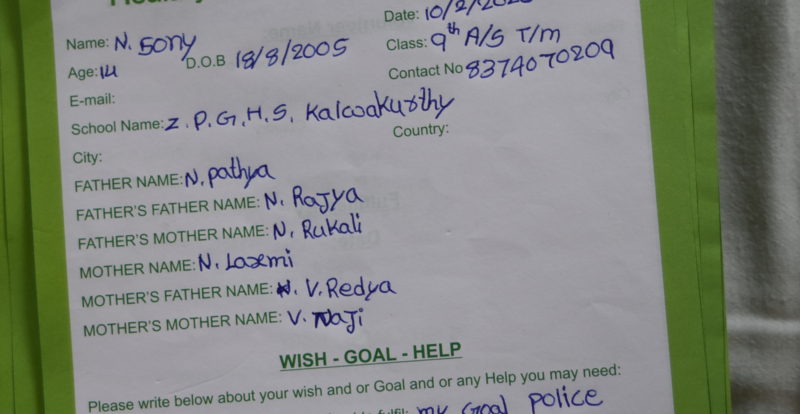 Date: 10/2/202
Name: N. Sony
Class: 9th A/S T/m
Age: 14 D.O.B 18/8/2005
Contact No 8374070209
E-mail:
School Name: Z. P. G. H. S. Kalwakurthy
Country:
City:
FATHER NAME: N. pathya
FATHER'S FATHER NAME: N. Rajya
FATHER'S MOTHER NAME: N. Rukali
MOTHER NAME: N. Laxmi
MOTHER'S FATHER NAME: V. Redya
MOTHER'S MOTHER NAME: V. Naji
WISH - GOAL - HELP
Please write below about your wish and or Goal and or any Help you may need:
my Goal police